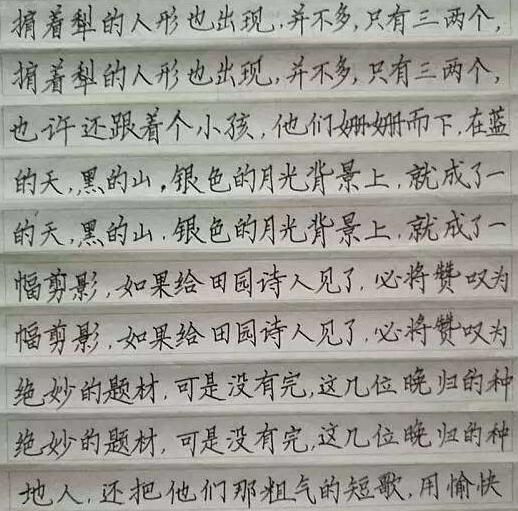 掮着犁的人形也出现,并不多,只有三两个,
掮着犁的人形也出现,并不多,只有三两个,
也许还跟着个小孩,他们姗姗而下,在蓝
的天,黑的山,银色的月光背景上,就成了一
的天,黑的山,银色的月光背景上,就成了一
幅剪影,如果给田园诗人见了,必将赞叹为
幅剪影,如果给田园诗人见了,必将赞叹为
绝妙的题材,可是没有完,这几位晚归的种
绝妙的题材,可是没有完,这几位晚归的种
地人,还把他们那粗气的短歌,用愉快